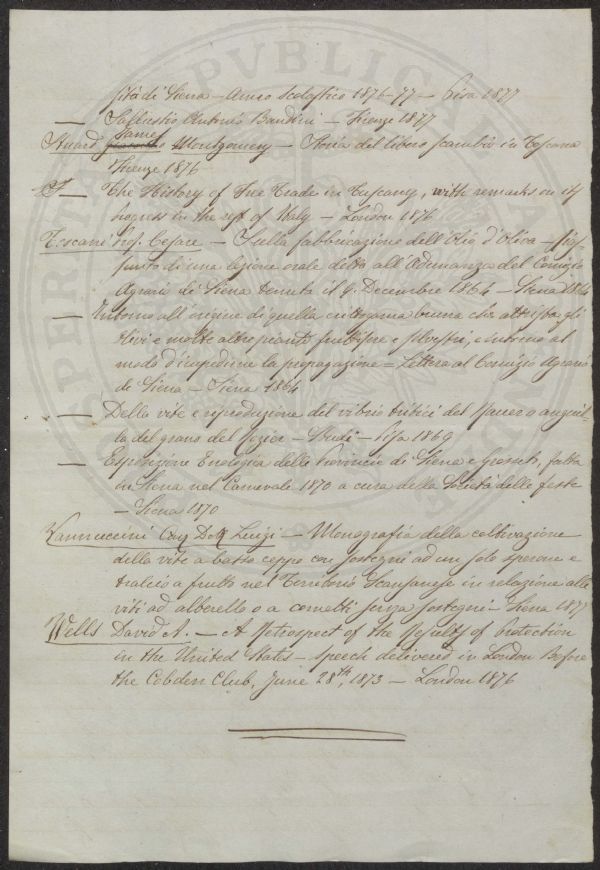 sità di Siena — Anno scolastico 1876-77 — Pisa 1877
— Sallustio Antonio Bandini — Firenze 1877
Stuard James Montgomery — Storia del libero scambio in Toscana
Firenze 1876
— The History of Free Trade in Tuscany, with remarks on its
progress in the rest of Italy — London 1876
Toscani Prof. Cesare — Sulla fabbricazione dell'Olio d'Oliva — Rias-
sunto di una lezione orale detta all'Adunanza del Comizio
Agrario di Siena tenuta il 9. Decembre 1864 — Siena 1864
— Intorno all'origine di quella crittogama bruna che attrista gli
olivi e molte altre piante fruttifere e silvestri, e intorno al
modo d'impedirne la propagazione = Lettera al Comizio Agrario
di Siena — Siena 1864
— Della vita e riproduzione del vibrio tritici del Bauer o anguil-
la del grano del Rozier — Studi — Pisa 1869
— Esposizione Enologica delle Provincie di Siena e Grosseto, fatta
in Siena nel Carnevale 1870 a cura della Società delle feste
— Siena 1870
Vannuccini Cav. Dott. Luigi — Monografia della coltivazione
della vite a basso ceppo con sostegni ad un solo sperone e
tralcio a frutto nel Territorio Scansanese in relazione alle
viti ad alberello o a cornetti senza sostegni — Siena 1877
Wells David A. — A Retrospect of the Results of Protection
in the United States — Speech delivered in London Before
the Cobden Club, June 28th, 1873 — London 1876
PROSPERITATI PVBLICAE AVGENDAE